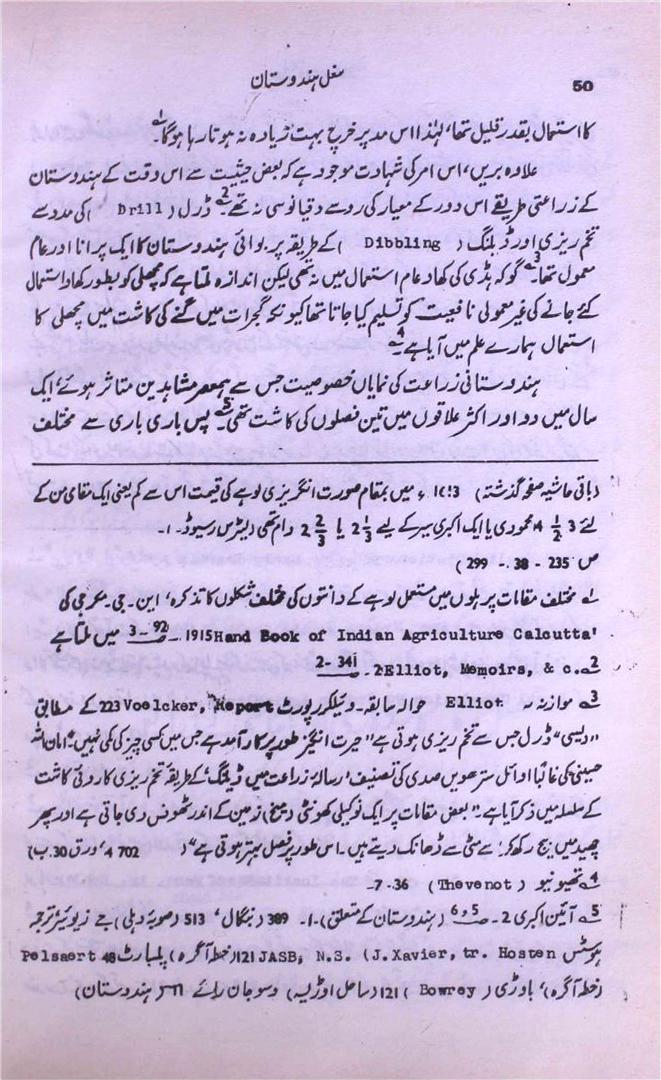 50 مغل ہندوستان
کا استعمال بقدر قلیل تھا، لہٰذا اس مد پر خرچ بہت زیادہ نہ ہوتا رہا ہوگا۔1
علاوہ بریں، اس امر کی شہادت موجود ہے کہ بعض حیثیت سے اس وقت کے ہندوستان
کے زراعتی طریقے اس دور کے معیار کی رو سے دقیانوسی نہ تھے۔2 ڈرل ( Drill ) کی مدد سے
تخم ریزی اور ڈبلنگ ( Dibbling ) کے طریقہ پر بوائی ہندوستان کا ایک پرانا اور عام
معمول تھا۔3 گو کہ ہڈی کی کھاد عام استعمال میں نہ تھی لیکن اندازہ ملتا ہے کہ مچھلی کو بطور کھاد استعمال
کئے جانے کی غیر معمولی نافعیت کو تسلیم کیا جاتا تھا کیونکہ گجرات میں گنے کی کاشت میں مچھلی کا
استعمال ہمارے علم میں آیا ہے۔4
ہندوستانی زراعت کی نمایاں خصوصیت جس سے ہمعصر مشاہدین متاثر ہوئے، ایک
سال میں دو اور اکثر علاقوں میں تین فصلوں کی کاشت تھی۔5 پس باری باری سے مختلف
(باقی حاشیہ صفحہ گذشتہ) 1613ء میں بمقام صورت انگریزی لوہے کی قیمت اس سے کم یعنی ایک مقامی من کے
لئے 3 1/2 4 محمودی یا ایک اکبری سیر کے لیے 2 1/3 یا 2 2/3 دام تھی (لیٹرس رسیوڈ۔ ۱۔
ص 235 - 38 ۔ 299 )
1 مختلف مقامات پر ہلوں میں مستعمل لوہے کے دانتوں کی مختلف شکلوں کا تذکرہ، این۔جی۔مکرجی کی
1915 Hand Book of Indian Agriculture Calcutta' ۔ ص 92-3 میں ملتا ہے
2 Elliot, Memoirs, & c. 2۔ 341-2
3 موازنہ Elliot حوالہ سابقہ۔ ویلکر رپورٹ Voelcker, Report 223 کے مطابق
"دیسی" ڈرل جس سے تخم ریزی ہوتی ہے "حیرت انگیز طور پر کار آمد ہے جس میں کسی چیز کی کمی نہیں"۔ امان اللہ
حسینی کی غالباً اوائل سترھویں صدی کی تصنیف، رسالۂ زراعت میں ڈبلنگ، کے طریقہ تخم ریزی کا روئی کاشت
کے سلسلہ میں ذکر آیا ہے۔ "بعض مقامات پر ایک نوکیلی کھونٹی (میخ) زمین کے اندر ٹھونس دی جاتی ہے اور پھر
چھید میں بیج رکھ کر اسے مٹی سے ڈھانک دیتے ہیں۔ اس طور پر فصل بہتر ہوتی ہے" ( 702 4، ورق 30۔ب)
4 تھیونیو ( Thevenot ) 36-7۔
5 آئین اکبری 2۔ ص 5، 6 (ہندوستان کے متعلق) ۔۱۔ 389 (بنگال، 513 (صوبۂ دہلی) جے زیویئر ترجمہ
ہوسٹن JASB, N.S. (J.Xavier, tr. Hosten 121 (خطہ آگرہ) پلسارٹ Pelsaert 48
(خطہ آگرہ)، باوڑی ( Bowrey ) 121 (ساحل اوڑیسہ) و سوجان رائے 11 (ہندوستان)